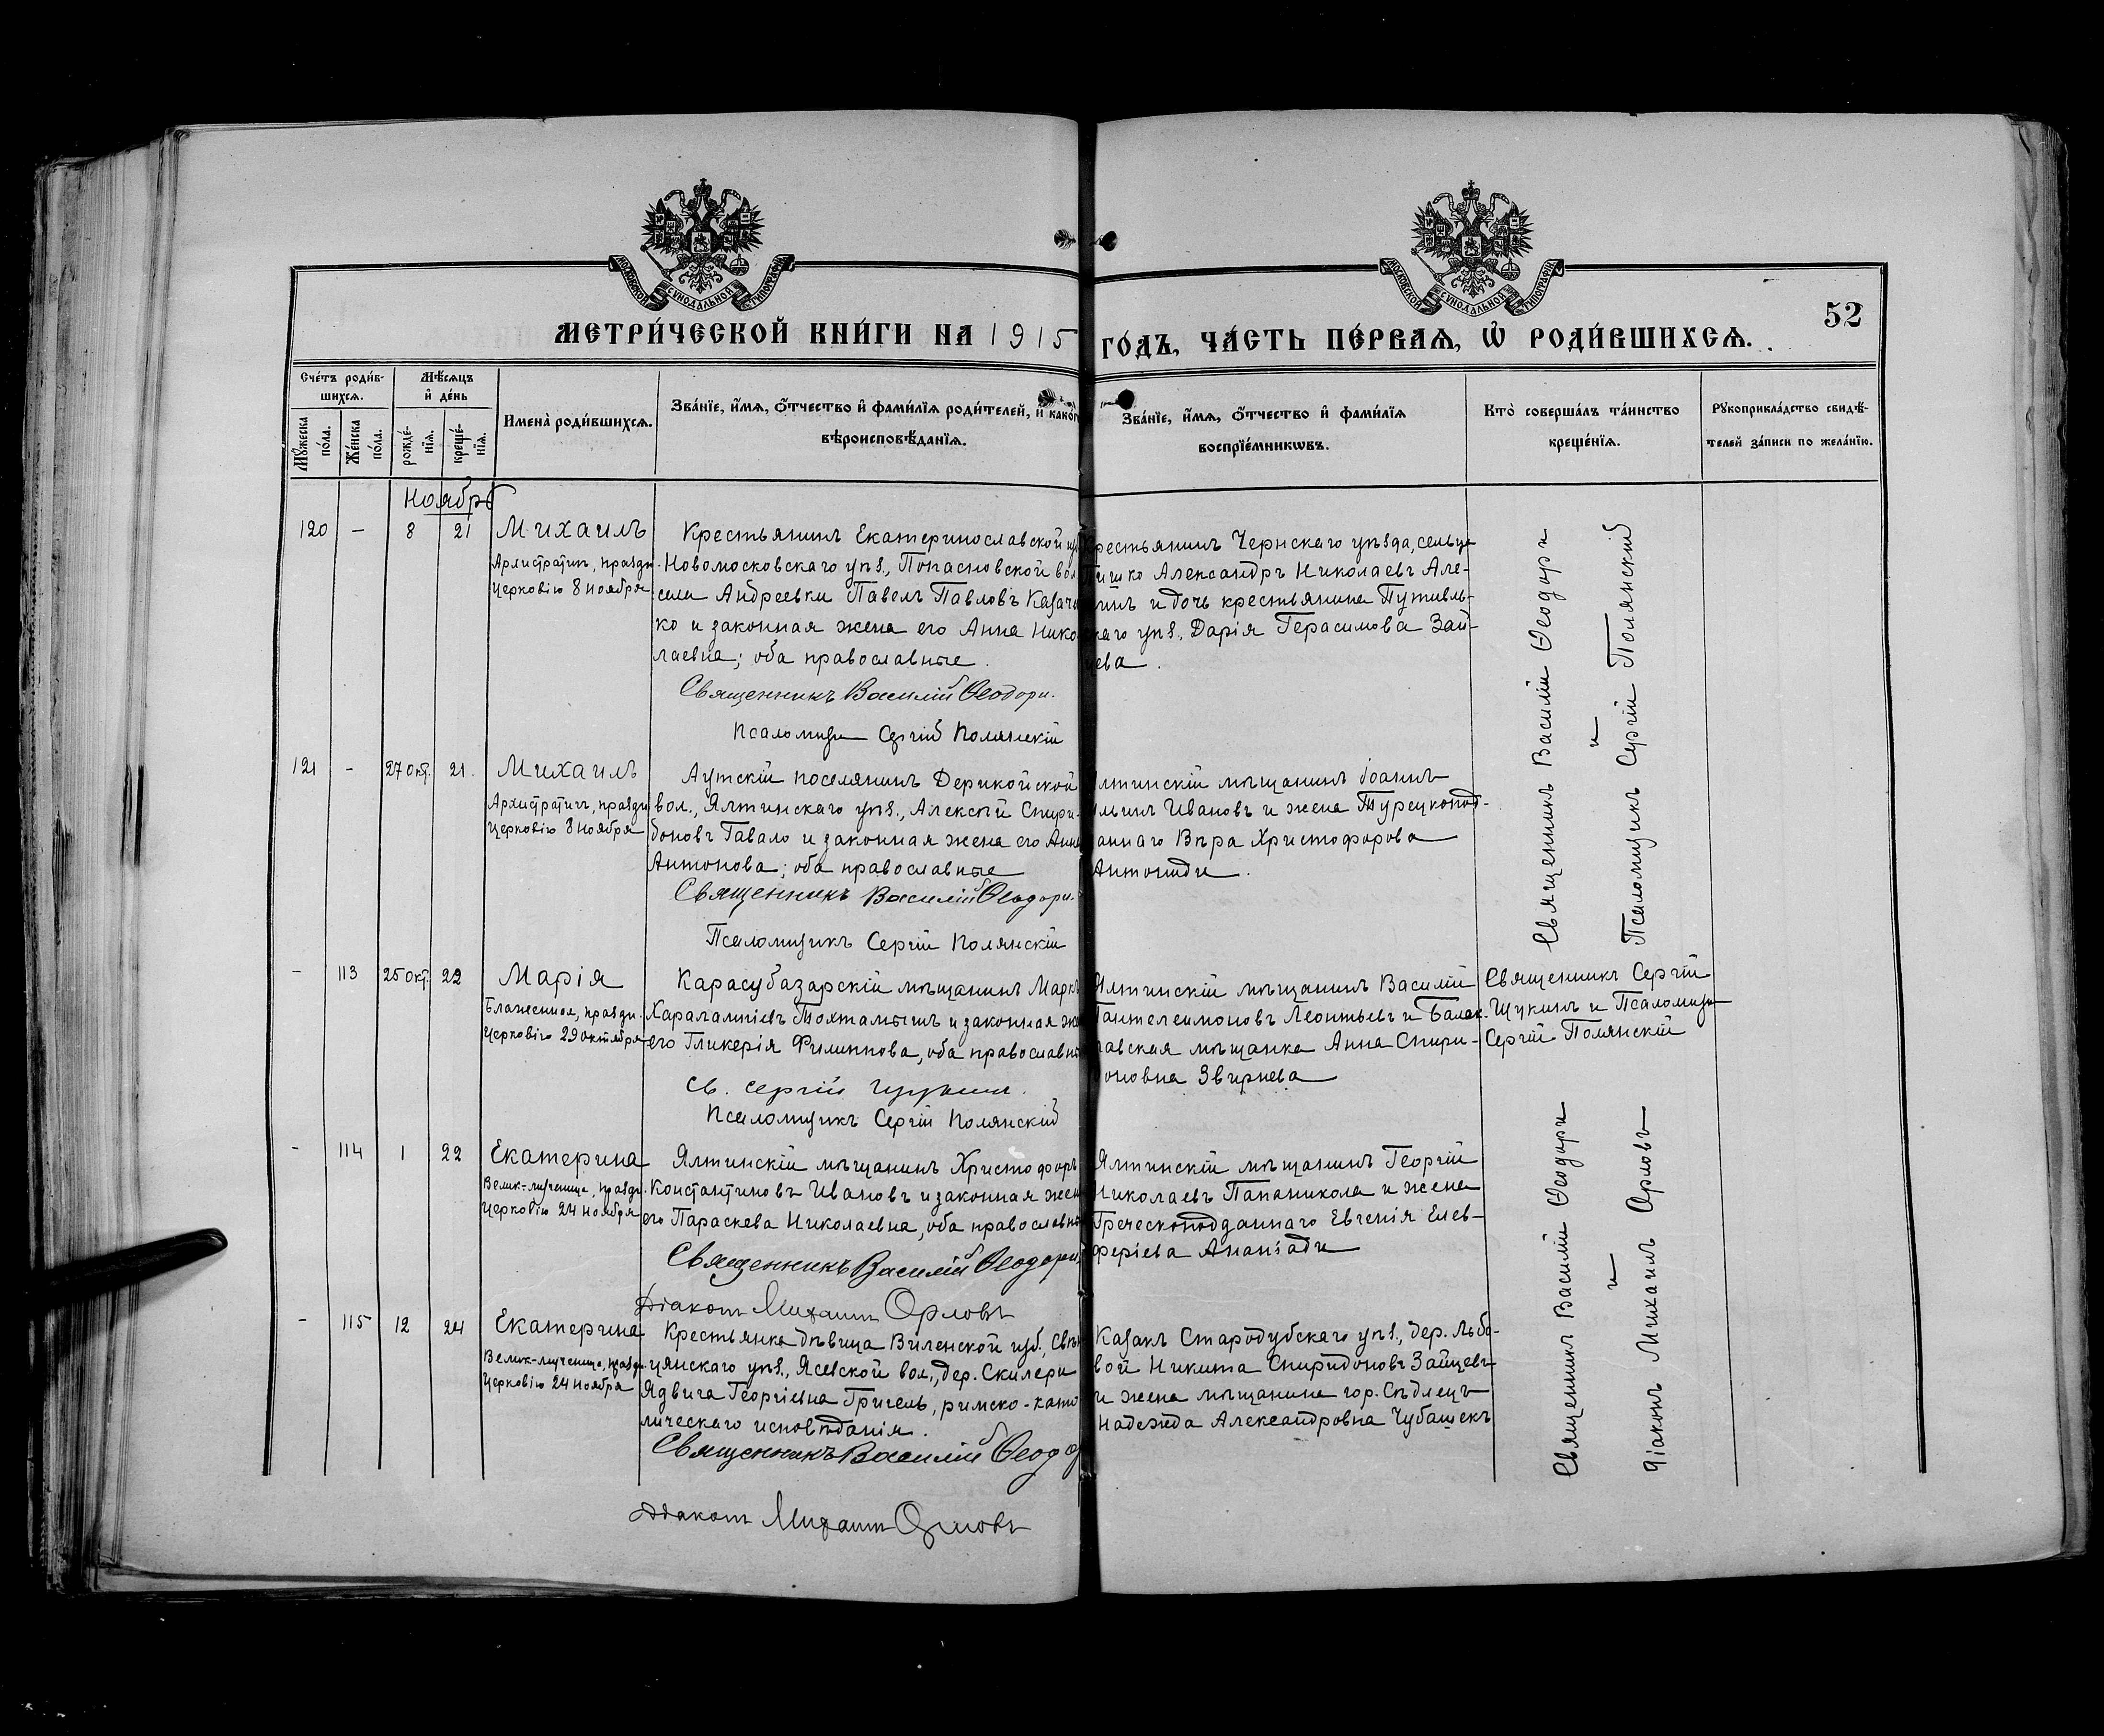 МОСКОВСКОЙ СѴНОДАЛЬНОЙ ТИПОГРАФІИ
МОСКОВСКОЙ СѴНОДАЛЬНОЙ ТИПОГРАФІИ
МЕТРИ́ЧЕСКОЙ КНИ́ГИ НА 1915 ГО́ДЪ, ЧА́СТЬ ПЕ́РВАѦ, Ѽ РОДИ́ВШИХСѦ.
52
Сче́тъ роди́в-
шихсѧ.
Мꙋжеска по́ла.
Же́нска по́ла.
Мѣ́сѧцъ
и҆ де́нь
рожде́-
нїѧ.
креще́-
нїѧ.
Имена̀ роди́вшихсѧ.
Зва́нїе, и҆́мѧ, ѻ҆́тчество и҆ фами́лїѧ роди́телей, и҆ како́гѡ
вѣроисповѣ́данїѧ.
Зва́нїе, и҆́мѧ, ѻ҆́тчество и҆ фами́лїѧ
воспрїе́мникѡвъ.
Кто̀ соверша́лъ та́инство
креще́нїѧ.
Рꙋкоприкла́дство свидѣ́-
телей за́писи по жела́нїю.
Ноябрь
120 — 8 21 Михаилъ
Архистратигъ, праздн.
Церковію 8 Ноября
Крестьянинъ Екатеринославской губ
Новомосковскаго уѣз., Попасновской вол
села Андреевки Павелъ Павловъ Казач
ко и законная жена его Анна Нико
лаевна; оба православные.
Священникъ Василій Ѳеодори.
Псаломщи Сергій Полянскій
Крестьянинъ Чернскаго уѣзда, сельца
Александръ Николаевъ Але-
и дочь крестьянина Путивль-
скаго уѣз., Дарія Герасимова Зай-
цева.
Священникъ Василій Ѳеодори
и
Псаломщикъ Сергій Полянскій
121 - 27 окт. 21. Михаилъ
Архистратигъ, праздн
Церковію 8 Ноября
Аутскій поселянинъ Дерикойской
вол., Ялтинскаго уѣз., Алексѣй Спири-
доновъ Гавало и законная жена его Анна
Антонова; оба православные
Священникъ Василій Ѳеодори.
Псаломщикъ Сергій Полянскій
Ялтинскій мѣщанинъ Іоаннъ
Ивановъ и жена Турецкопод-
даннаго Вѣра Христофорова
Антониади.
- 113 25 окт. 22 Марія
Блаженная, праздн.
Церковію 29 октября
Карасубазарскій мѣщанинъ Маркъ
Харалампіевъ Тохтамышъ и законная же
его Гликерія Филиппова, оба православн
Св. Сергій Щукинъ.
Псаломщикъ Сергій Полянскій
Ялтинскій мѣщанинъ Василій
Пантелеимоновъ Леонтьевъ и Балак-
лавская мѣщанка Анна Спири-
доновна Звирнева
Священникъ Сергій
Щукинъ и Псаломщи
Сергій Полянскій
- 114 1 22 Екатерина
Велик-мученица, праздн.
Церковію 24 ноября
Ялтинскій мѣщанинъ Христофоръ
Константиновъ Ивановъ и законная жен
его Параскева Николаевна, оба православн
Священникъ Василій Ѳеодори,
Діаконъ Михаилъ Орловъ
Ялтинскій мѣщанинъ Георгій
Николаевъ Папаникола и жена
Греческоподданнаго Евгенія Елев-
феріева Ананіади
Священникъ Василій Ѳеодори
и
Діаконъ Михаилъ Орловъ
- 115 12 24 Екатерина
Велик-мученица, праздн.
Церковію 24 ноября
Крестьянка дѣвица Виленской губ., Свѣн
цянскаго уѣз., Ясевской вол., дер. Скилери
Ядвига Георгіевна Григель, римско-като
лическаго исповѣданія.
Священникъ Василій Ѳеодо
Діаконъ Михаилъ Орловъ
Казакъ Стародубскаго уѣз., дер. Льбо-
вой Никита Спиридоновъ Зайцевъ
и жена мѣщанина гор. Сѣдлецъ
Надежда Александровна Чубашекъ